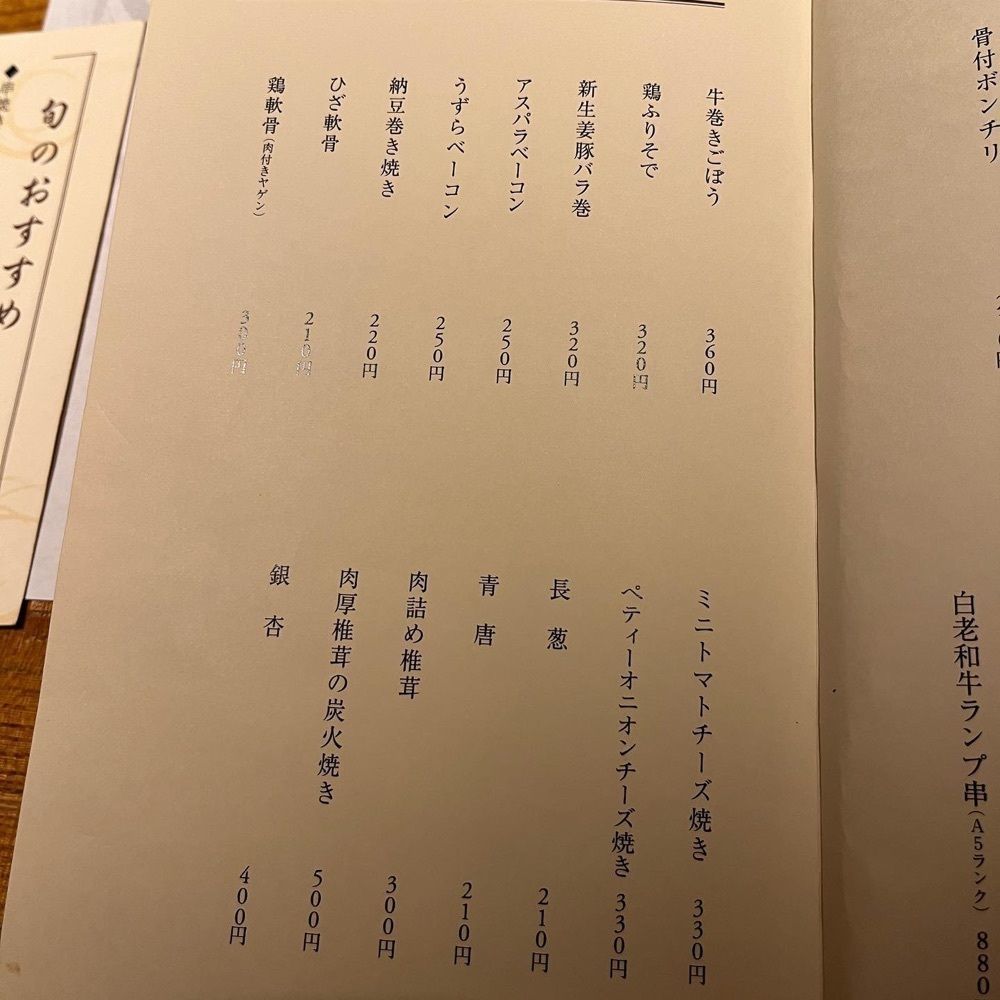 骨付ボンチリ
白老和牛ランプ串(A5ランク) 880
牛巻きごぼう 360円
鶏ふりそで 320円
新生姜豚バラ巻 320円
アスパラベーコン 250円
うずらベーコン 250円
納豆巻き焼き 220円
ひざ軟骨 210円
鶏軟骨(肉付きヤゲン)
ミニトマトチーズ焼き 330円
ペティーオニオンチーズ焼き 330円
長葱 210円
青唐 210円
肉詰め椎茸 300円
肉厚椎茸の炭火焼き 500円
銀杏 400円
旬のおすすめ